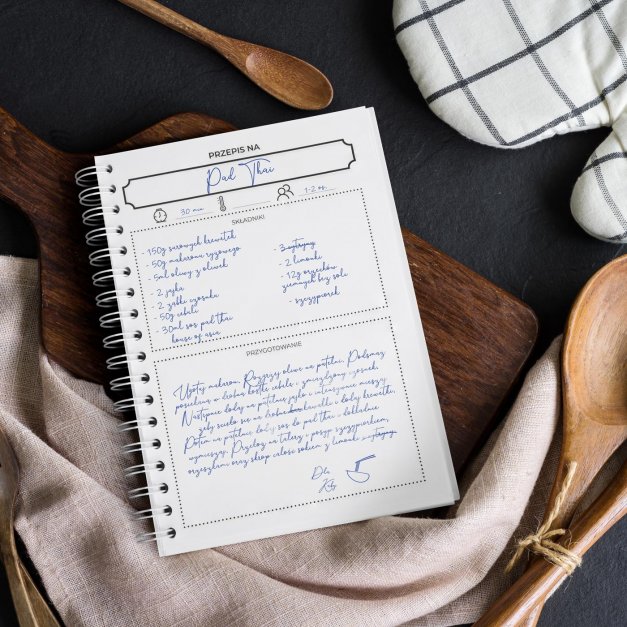 PRZEPIS NA
Pad Thai
30 min
1-2 os.
SKŁADNIKI
- 150g surowych krewetek
- 50g makaronu ryżowego
- 5ml oliwy z oliwek
- 2 jajka
- 2 ząbki czosnku
- 50g cebuli
- 30ml sos pad thai
house of asia
- 3 cytryny
- 2 limonki
- 12g orzechów
ziemnych bez soli
- szczypiorek
PRZYGOTOWANIE
Ugotuj makaron. Rozgrzej oliwę na patelni. Podsmaż
posiekaną w drobną kostkę cebulę i zmiażdżony czosnek.
Następnie dodaj na patelnię jajko i intensywnie mieszaj
żeby ścięło się na drobne kawałki i dodaj krewetki.
Potem na patelnię dodaj sos do pad thai i dokładnie
wymieszaj. Przełóż na talerz i posyp szczypiorkiem,
orzeszkami oraz skrop całość sokiem z limonki cytryny
Dla